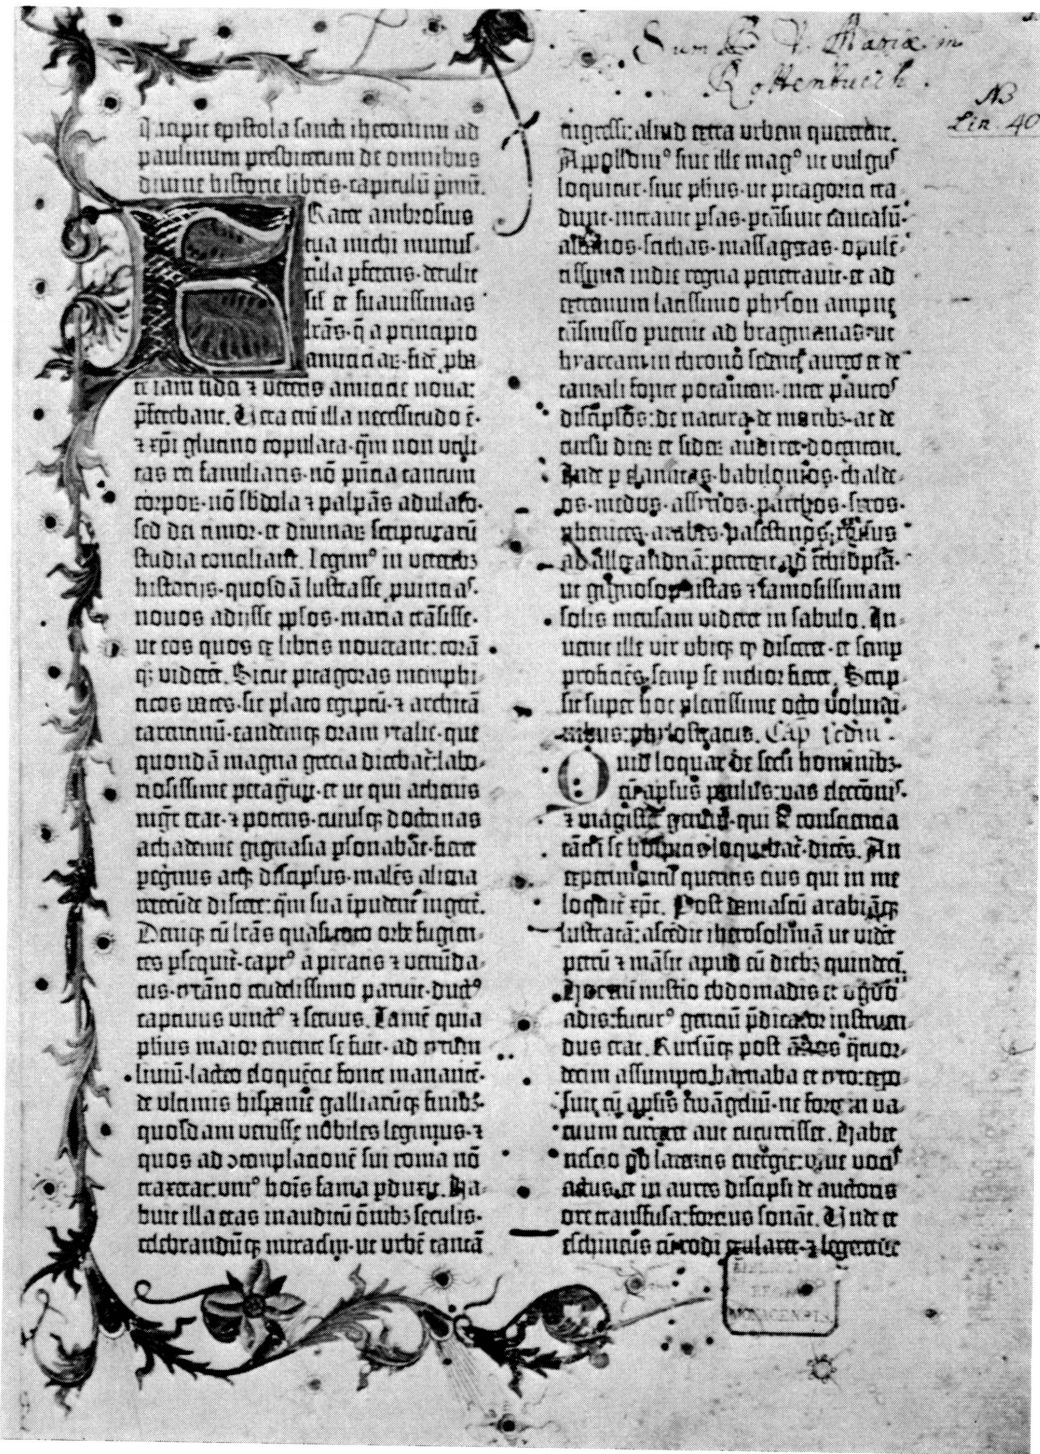 Sum B. V. Mariæ in
Rottenbuech.
NB
Lin. 40
Incipit epistola sancti iheronimi ad
paulinum presbiterum de omnibus
divine historie libris·capitulū pmū.
Frater ambrosius
tua michi munus-
cula pferens·detulit
sil̄ et suavissimas
lrās·q̄ a principio
amiciciaꝝ·fidē pba-
te iam fidei ⁊ veteris amicicie nova:
pferebant. Vera enī illa necessitudo ē·
⁊ xp̄i glutino copulata·qm̄ non utili-
tas rei familiaris·nō pn̄tia tantum
corpoꝝ·nō sb̄dola ⁊ palpās adulatō·
sed dei timor·et divinaꝝ scripturarū
studia conciliant. Legimꝰ in veteribꝫ
historijs·quosdā lustrasse ꝓvinciaſ·
novos adijsse pp̄los·maria trāsisse·
ut eos quos ex libris noverant: corā
qꝫ viderēt. Sicut pitagoras memphi-
ticos vates·sic plato egiptū·⁊ architā
tarentinū·eandemqꝫ oram ytalie·que
quondā magna grecia dicebat̄: labo-
riosissime peragvit·et ut qui athenis
mgr̄ erat·⁊ potens·cuiusqꝫ doctrinas
achademie gignasia psonabāt·fieret
pegrinus atqꝫ discipulus·malēs aliena
verecūde discere: qm̄ sua īpudent̄ ingerē.
Deniqꝫ cū lrās quasi toto orbe fugien-
tes psequit̄·captꝰ a piratis ⁊ venūda-
tus·tyrāno crudelissimo paruit·ductꝰ
captivus vinctꝰ ⁊ servus. Tamē quia
phus maior emente se fuit·ad tytum
livium·lacteo eloquētie fonte manantē·
de ultimis hispanie galliarūqꝫ finibꝫ·
quosdam venisse nobiles legimus·⁊
quos ad ↄtemplationē sui roma nō
traxerat: uniꝰ hoīs fama pduxit. Ha-
buit illa etas inauditū oībꝫ seculis·
celebrandūqꝫ miraclm̄·ut urbē tantā
ingressi: aliud extra urbem quererent.
Appolloniꝰ sive ille magꝰ ut vulgus
loquitur·sive phus·ut pitagorici tra-
dunt·intravit psas·ptrāsivit caucasū·
albanos·scithas·massagetas·opulē-
tissima indie regna penetravit·et ad
extremum latissimo physon ampne
trāsmisso puenit ad bragmanas·ut
hyarcam in throno sedentē aureo et de
tantali fonte potantem·inter paucos
discipulos: de natura·de moribꝫ·ac de
cursu dieꝝ et sideꝝ audiret docentem.
Inde p elamitas·babilonios·chalde-
os·medos·assyrios·parthos·siros·
phenices·arabes·palestinos·revsus
ad allexandriā: perrexit ad ethiopiā·
ut gignosophistas ⁊ famosissimam
solis mensam videret in sabulo. In-
venit ille vir ubiqꝫ qd̄ disceret·et semp
proficiēs·semp se melior fieret. Scrip-
sit super hoc plenissime octo volumi-
nibus: phylostratus. Cap̄ secdm̄·
Quid loquar de secli hominibꝫ·
cū apl̄us paulus: vas electōnis·
⁊ magister gentiū·qui de consciencia
tāti ī se hospitis loquebat̄·dicēs. An
experimentū queritis eius qui in me
loquit̄ xp̄c. Post damascū arabiāqꝫ
lustratā: ascēdit iherosolimā ut videt
petrū ⁊ māsit apud eū diebꝫ quindeci.
Hoc enī misterio ebdomadis et ogdo-
adis: futurꝰ gentiū pdicator instruen-
dus erat. Rursūqꝫ post ānos q̄tuor-
decim assumpto barnaba et tyto: expo-
suit cū apl̄is ewāgeliū·ne forte in va-
cuum curreret aut cucurrisset. Habet
nescio qd̄ latentis energie: vive vocis
actus·et in aures discipli de auctoris
ore transfusa: fortius sonat. Unde et
eschineus cū rodi exularet·⁊ legeretur
BIBLIOTHECA
REGIA
MONACENSIS